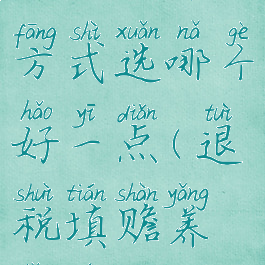 fāng shì xuǎn nǎ gè
方式选哪个
hǎo yī diǎn tuì
好一点(退
shuì tián shàn yǎng
税填赡养